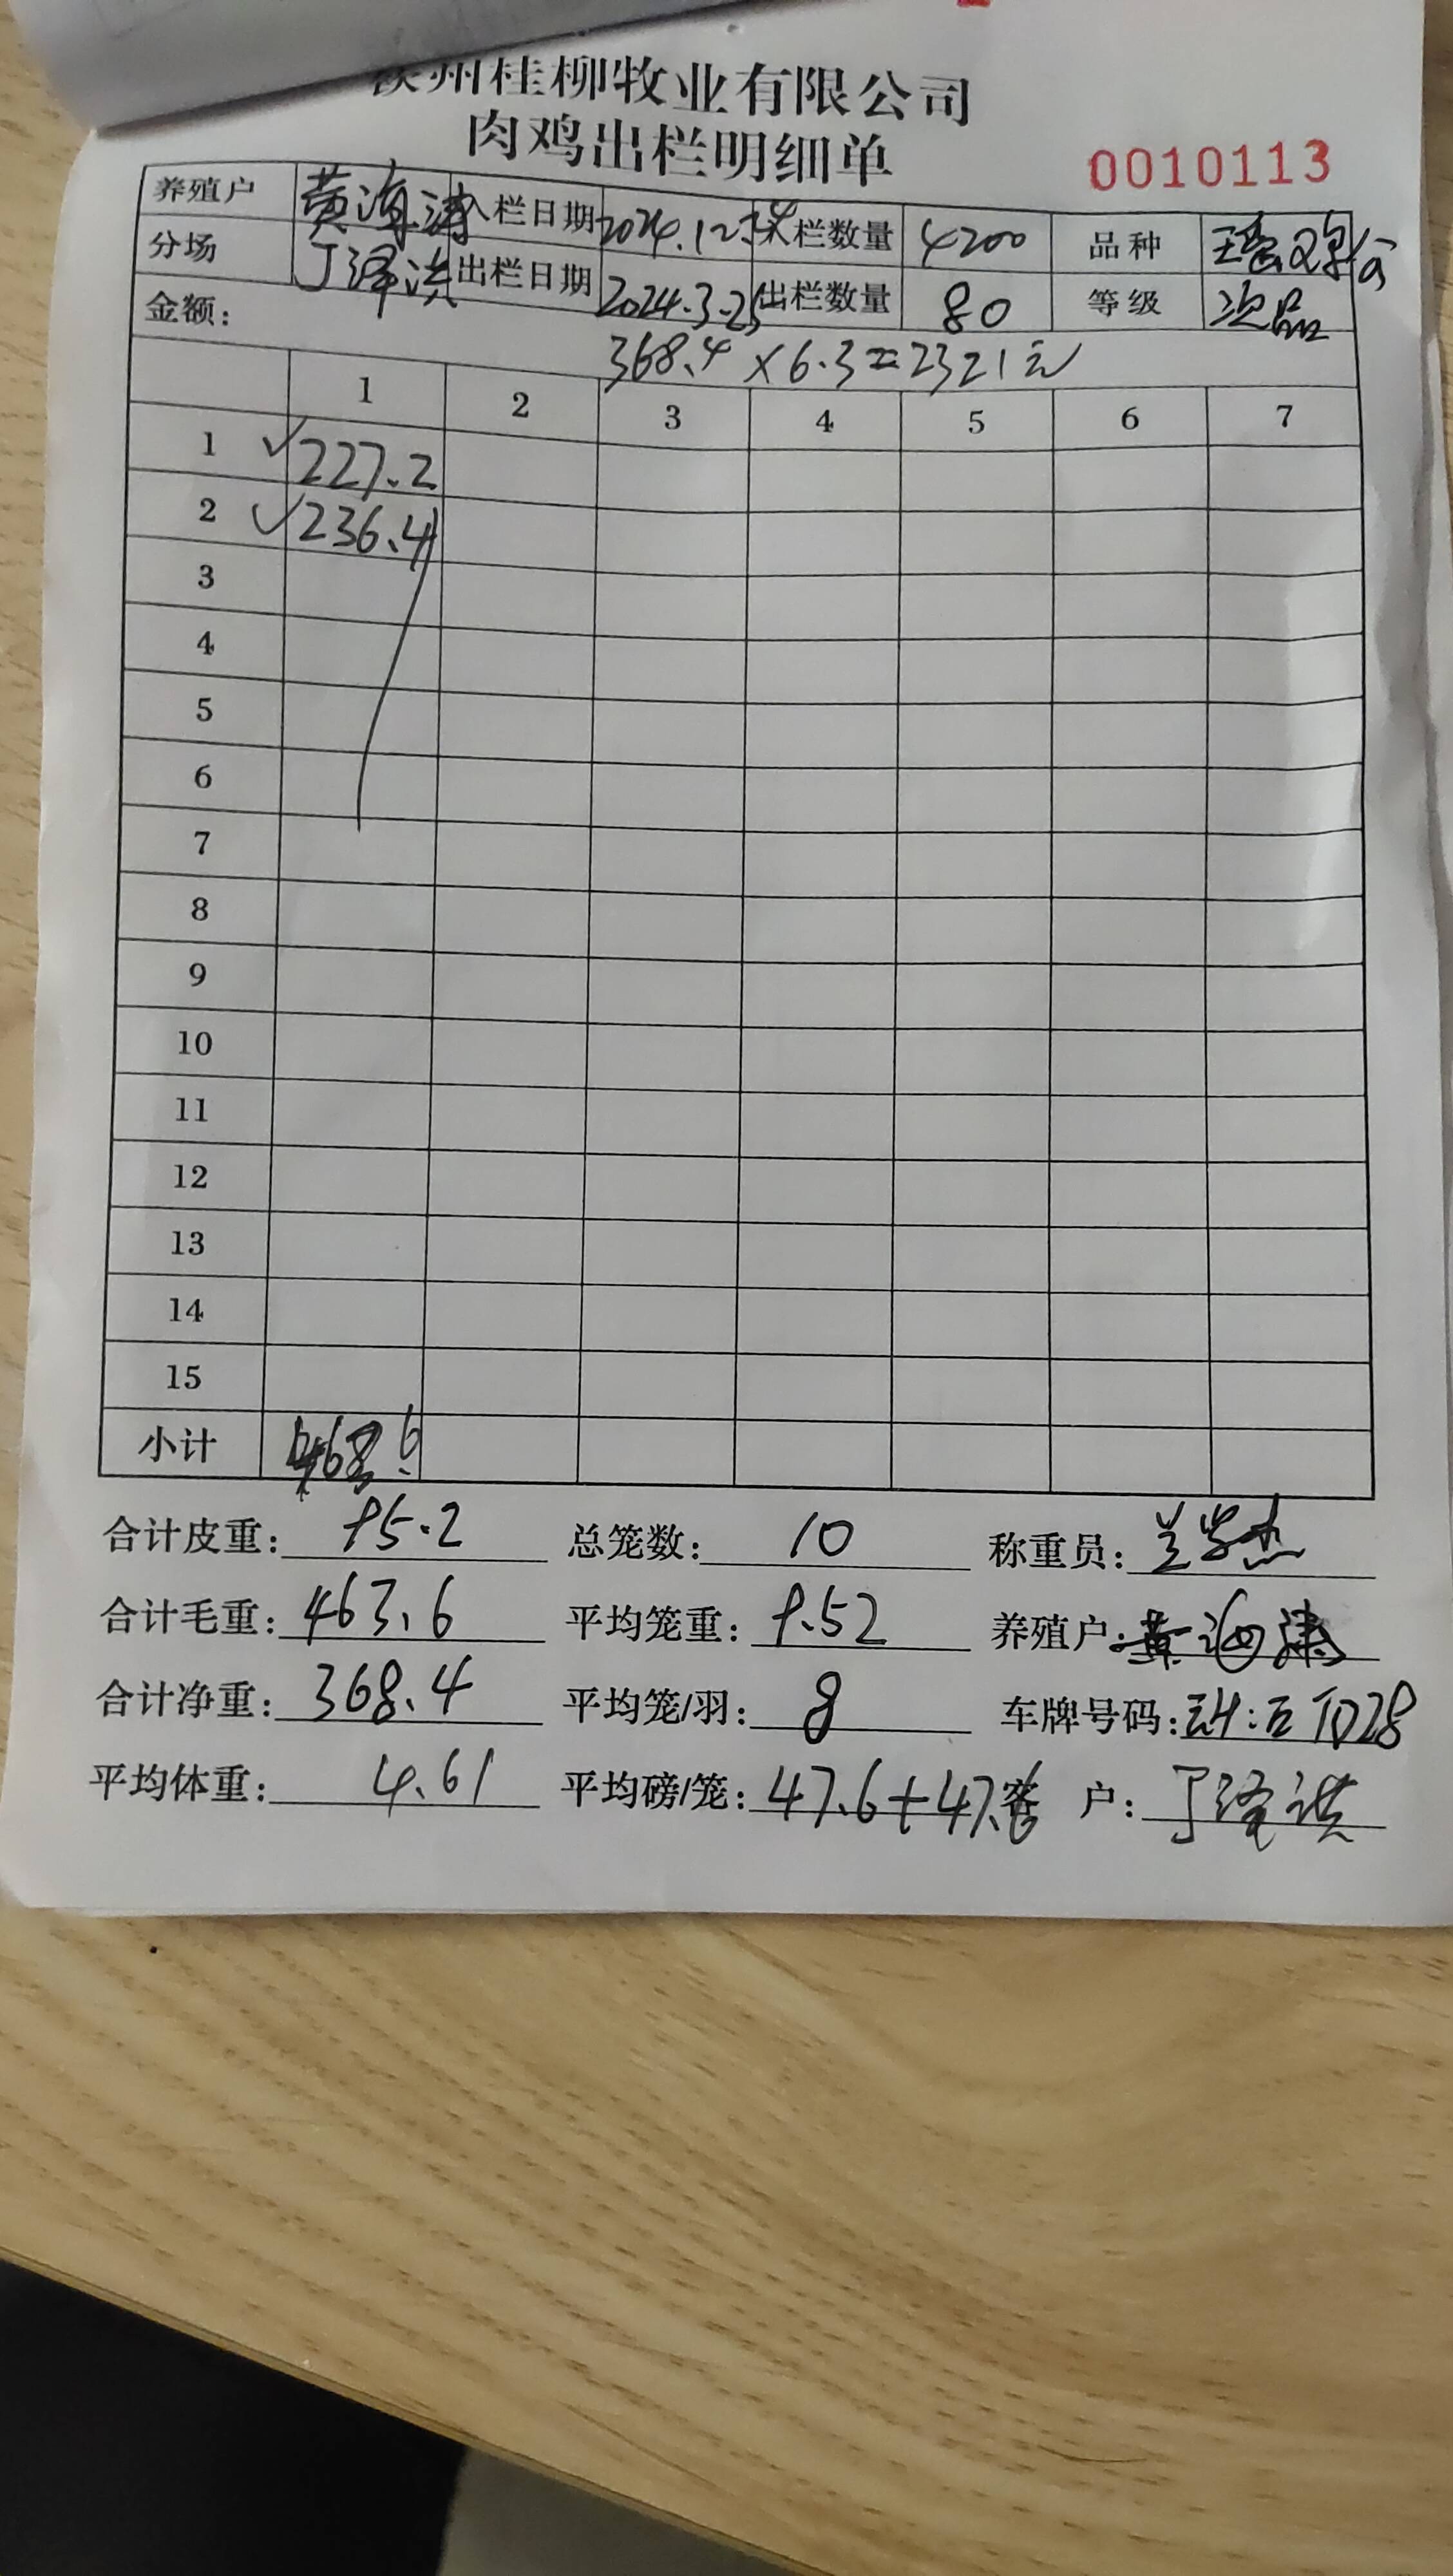 州桂柳牧业有限公司
肉鸡出栏明细单
0010113
养殖户 黄海涛 入栏日期 2024.12.24 入栏数量 4200 品种
分场 丁泽洪 出栏日期 2024.3.25 出栏数量 80 等级 次品
金额: 368.4×6.3=2321元
1 2 3 4 5 6 7
1 ✓227.2
2 ✓236.4
3
4
5
6
7
8
9
10
11
12
13
14
15
小计
合计皮重: 95.2 总笼数: 10 称重员:
合计毛重: 463.6 平均笼重: 9.52 养殖户: 黄海涛
合计净重: 368.4 平均笼/羽: 8 车牌号码:
平均体重: 4.61 平均磅/笼: 47.6+47.6 客户: 丁泽洪